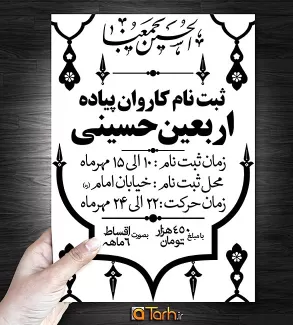 الحسین یجمعنا
ثبت نام کاروان پیاده
اربعین حسینی
زمان ثبت نام : ۱۰ الی ۱۵ مهرماه
محل ثبت نام : خیابان امام (ره)
زمان حرکت: ۲۲ الی ۲۴ مهرماه
با مبلغ ۴۵۰هزار تومان بصورت اقساط ۶ماهه
Tarh.ir